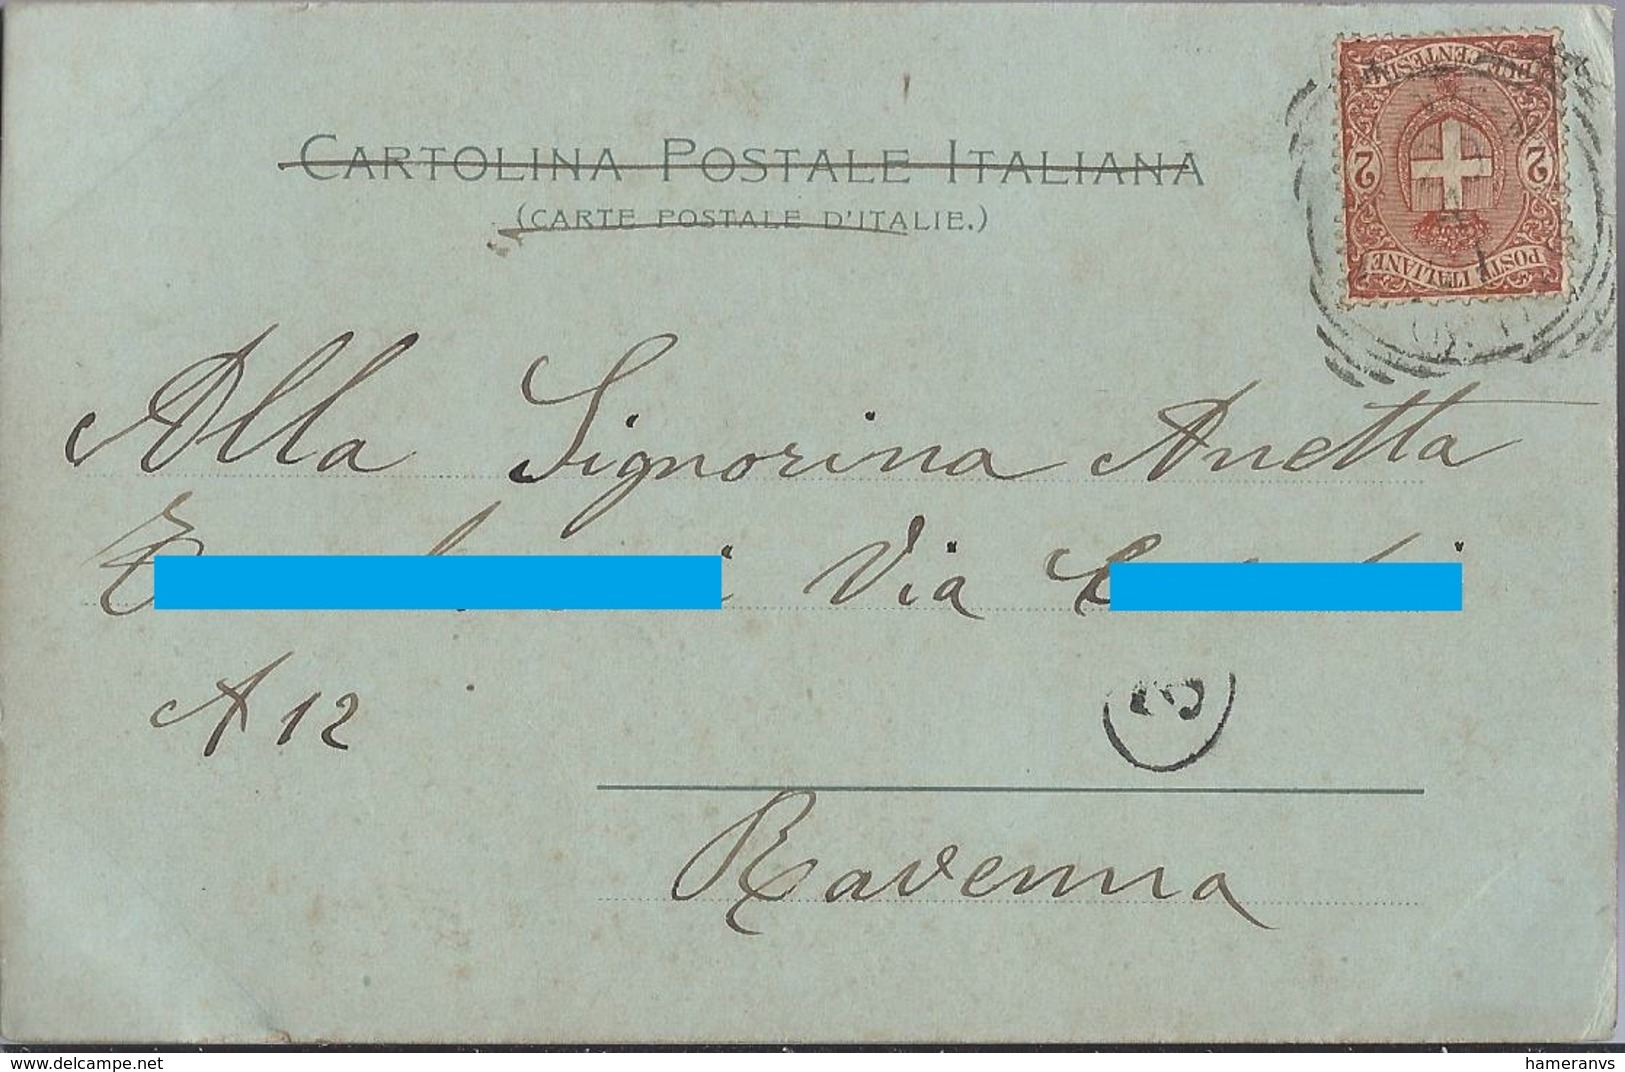 CARTOLINA POSTALE ITALIANA
(CARTE POSTALE D'ITALIE.)
DUE CENTESIMI
2 2
POSTE ITALIANE
Alla Signorina Anetta
Via
A 12
2
Ravenna
delcampe.net
hameranvs